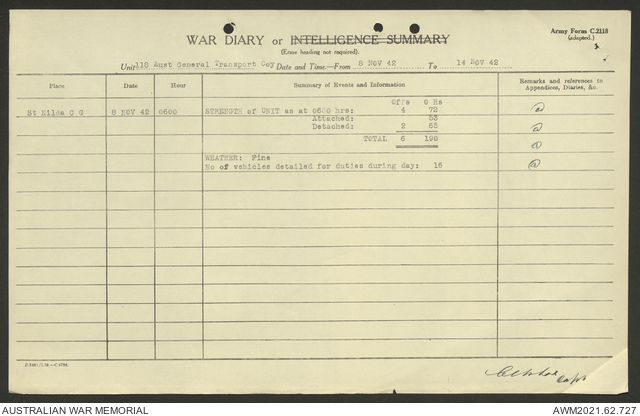 Army Form C.2118
(adapted.)
WAR DIARY or INTELLIGENCE SUMMARY
(Erase heading not required).
Unit 118 Aust General Transport Coy Date and Time.—From 8 NOV 42 To 14 NOV 42
Place Date Hour Summary of Events and Information Remarks and references to Appendices, Diaries, &c.
Offs O Rs
St Kilda C G 8 NOV 42 0600 STRENGTH of UNIT as at 0600 hrs: 4 72
Attached: 53
Detached: 2 65
TOTAL 6 190
WEATHER: Fine
No of vehicles detailed for duties during day: 16
Capt
AUSTRALIAN WAR MEMORIAL AWM2021.62.727